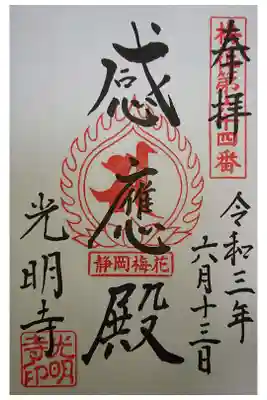 奉拝
十四番
令和三年
六月十三日
感應殿
静岡梅花
光明寺
光明
寺印